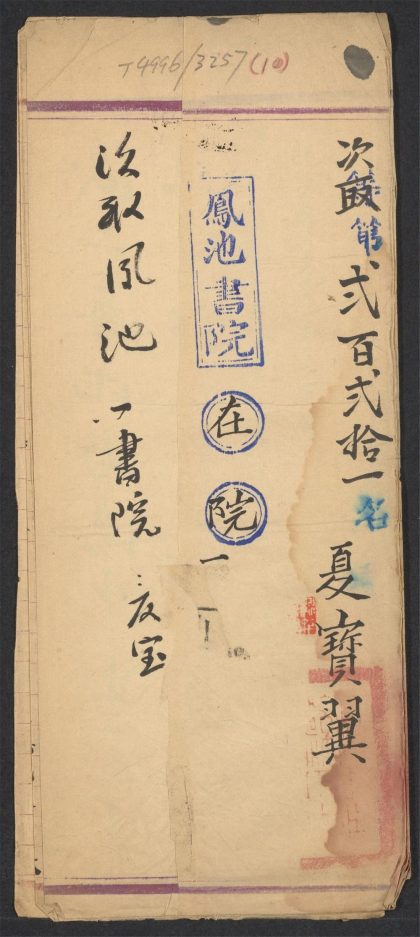 T4996/3257(10)
次取第弍百弍拾一名 夏寶翼
鳳池書院
在
院
一
次取鳳池一書院